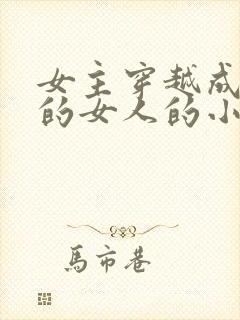 女主穿越成
的女人的小
馬市巷